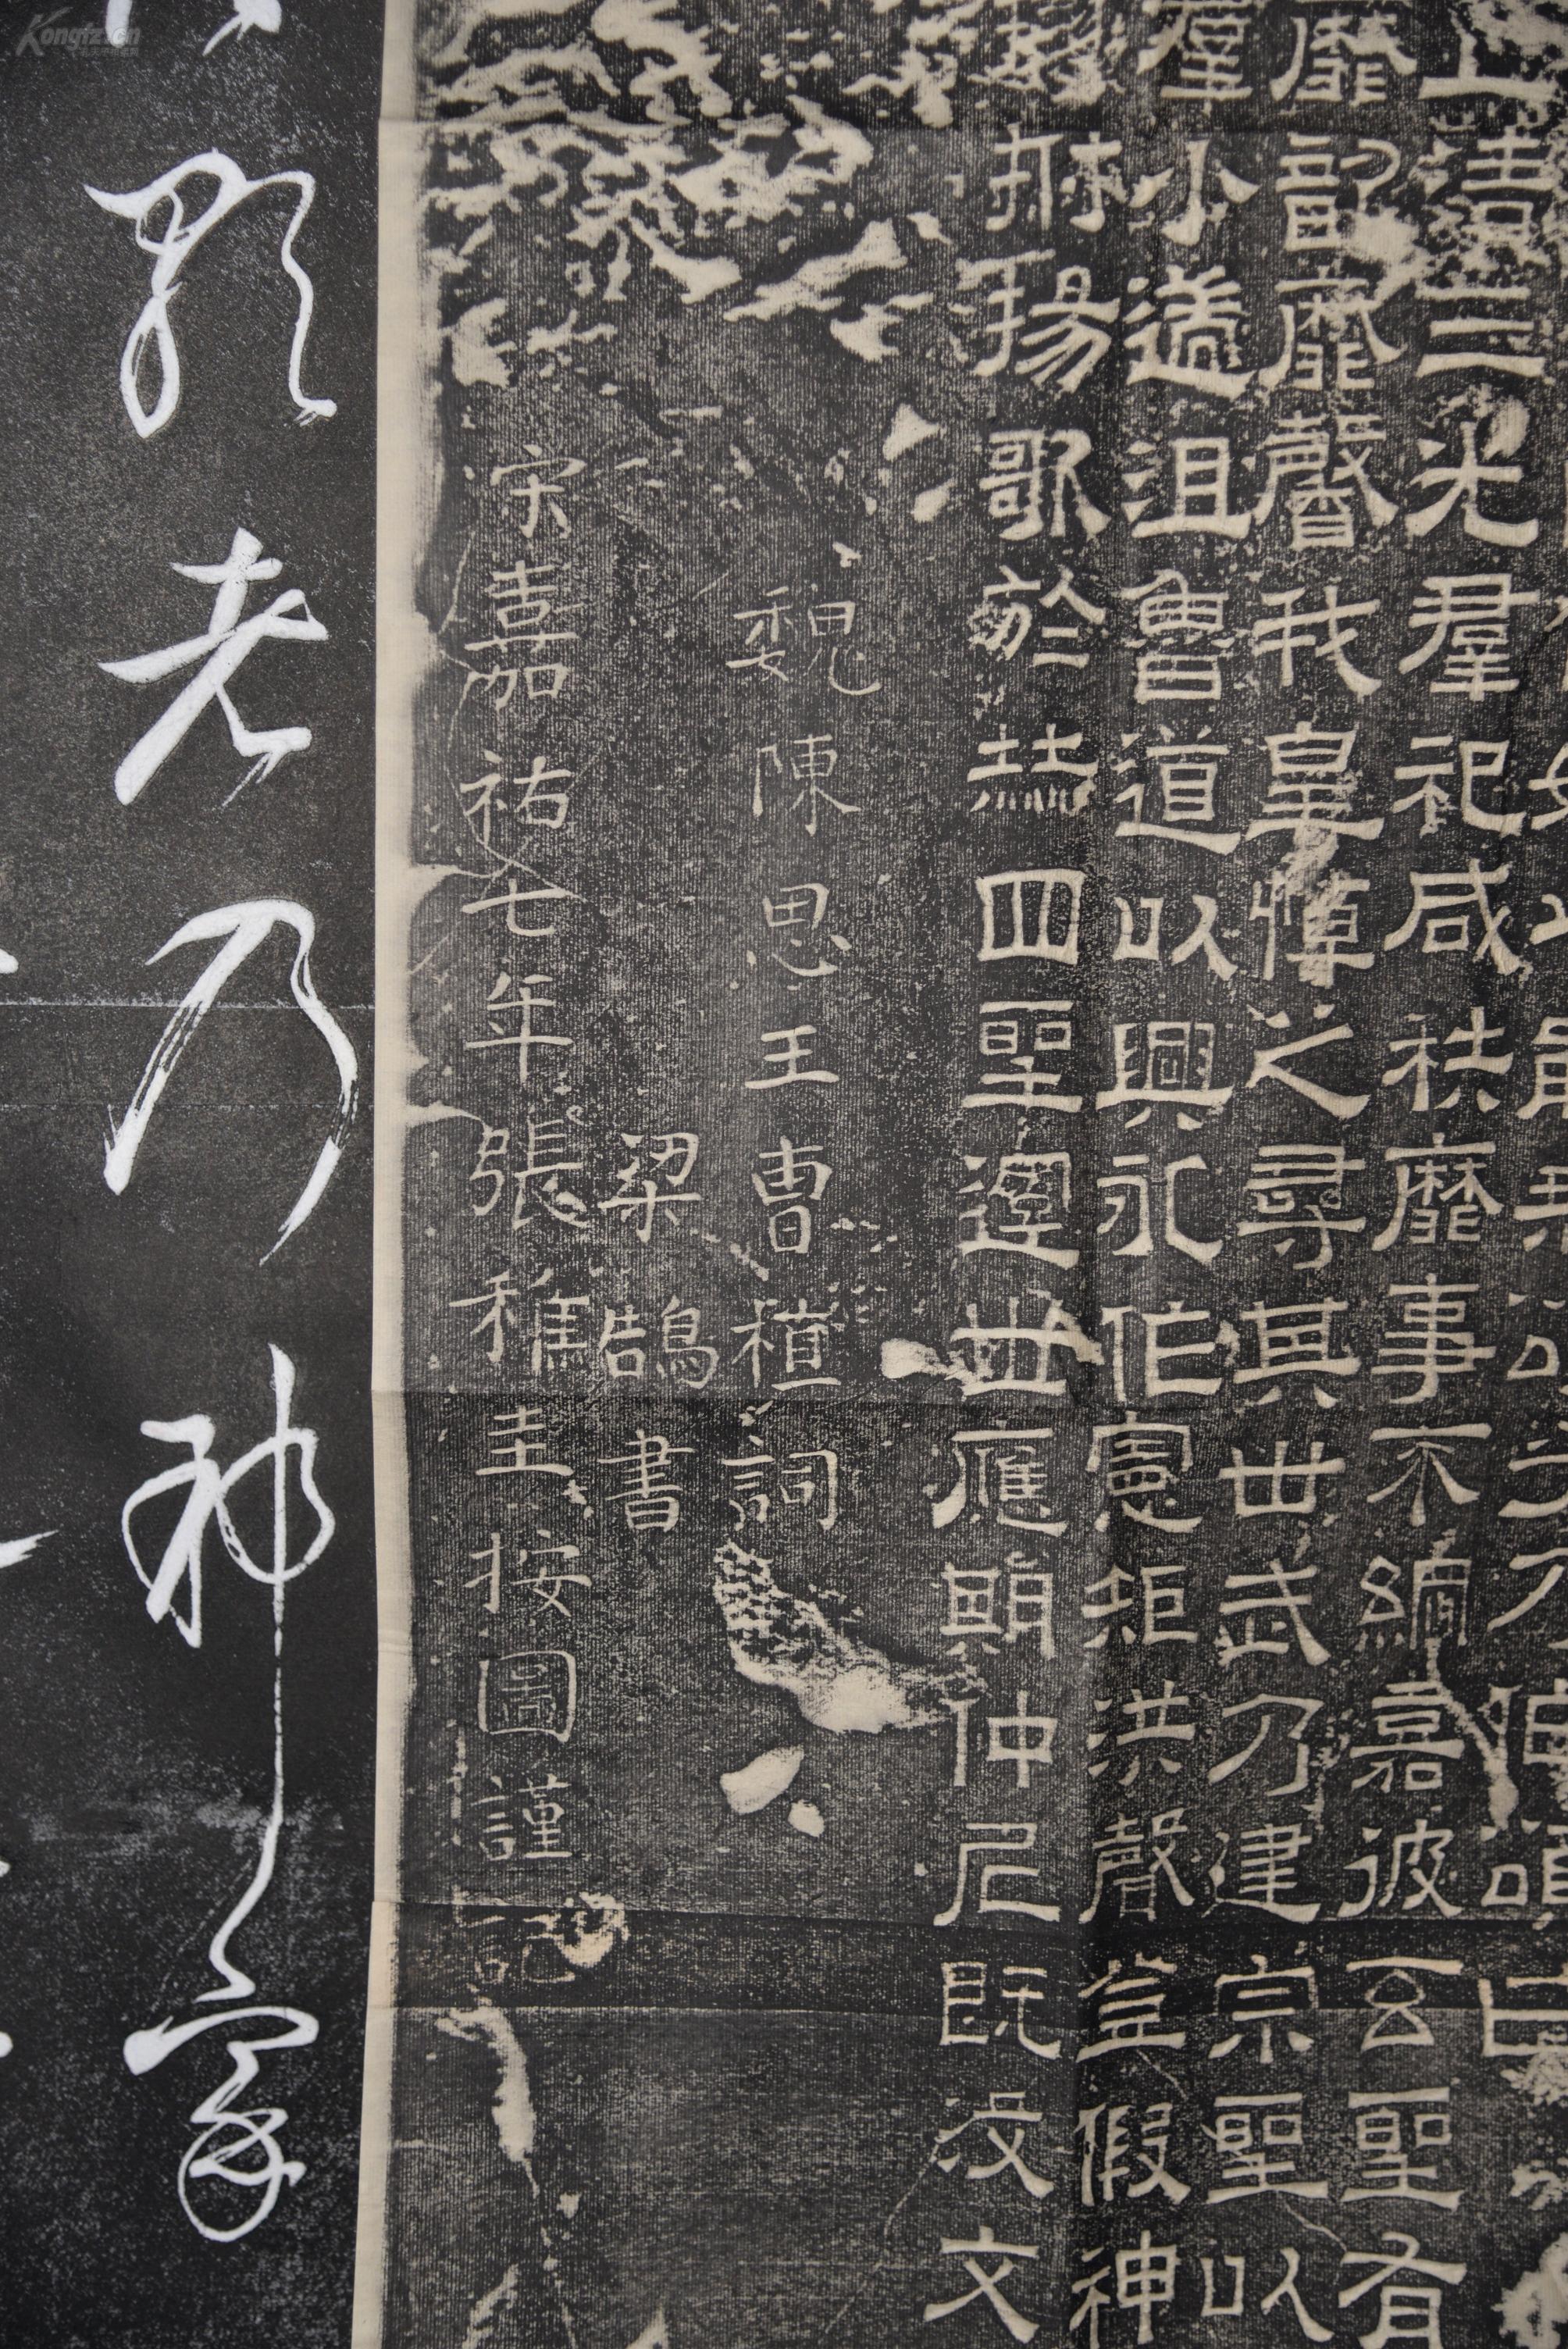 上清三光羣祀咸秩靡事不綱嘉彼玄聖有
靡韶靡馨我皇悼之尋其世武乃建宗聖以
羣小遄沮魯道以興永作憲矩洪聲登假神
拊揚歌於赫四聖運世應期仲尼既沒文
魏陳思王曹植詞
梁鵠書
宋嘉祐七年張稚圭按圖謹記
老乃神
Kongfz.cn